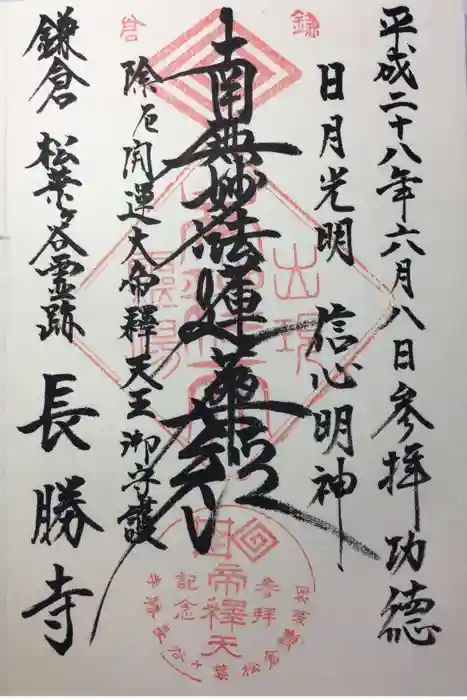 平成二十八年六月八日参拝功徳
日月光明 信心明神
南無妙法蓮華経
除厄開運大帝釋天王御守護
鎌倉 松葉ヶ谷霊跡 長勝寺
鎌倉
出現
帝釋天
参拝
記念